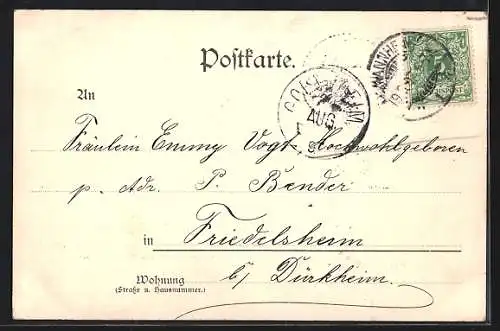 Postkarte.
MANNHEIM
AUG
An
Fräulein Emmy Vogt Hochwohlgeboren
p. Adr. P. Bender
in Friedelsheim
b/ Dürkheim.
Wohnung
(Straße u. Hausnummer.)